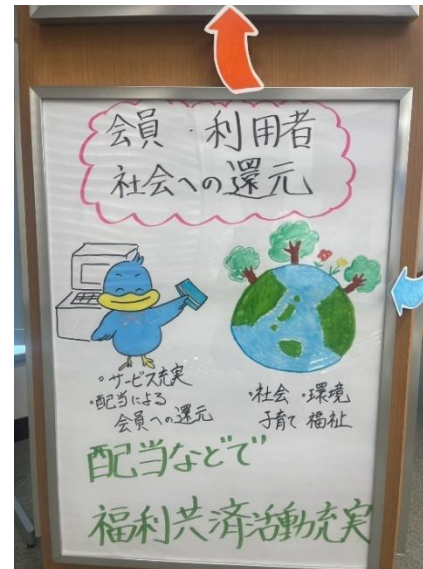 会員・利用者
社会への還元
。サービス充実
・配当による
会員への還元
・社会・環境
子育て 福祉
配当などで
福利共済活動充実